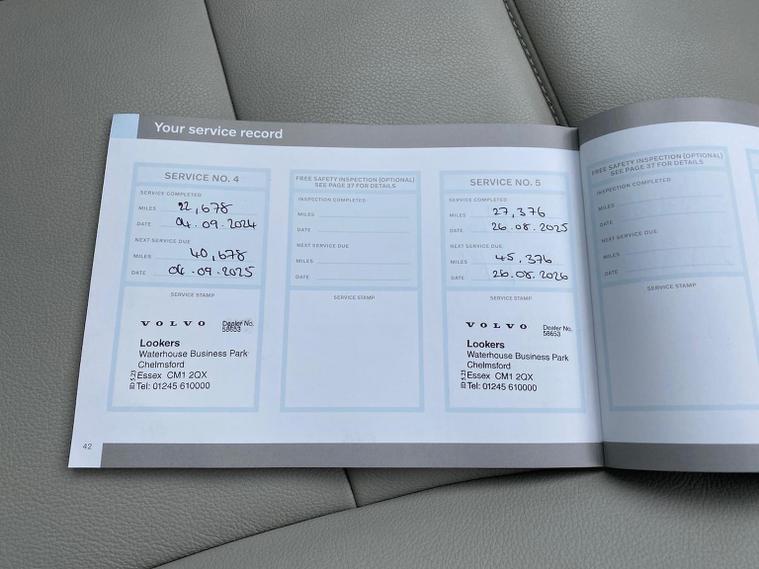 Your service record
SERVICE NO. 4
SERVICE COMPLETED
MILES 22,678
DATE 04.09.2024
NEXT SERVICE DUE
MILES 40,678
DATE 04.09.2025
SERVICE STAMP
VOLVO Dealer No.
58653
Lookers
Waterhouse Business Park
Chelmsford
Essex CM1 2QX
Tel: 01245 610000
FREE SAFETY INSPECTION (OPTIONAL)
SEE PAGE 37 FOR DETAILS
INSPECTION COMPLETED
MILES
DATE
NEXT SERVICE DUE
MILES
DATE
SERVICE STAMP
SERVICE NO. 5
SERVICE COMPLETED
MILES 27,376
DATE 26.08.2025
NEXT SERVICE DUE
MILES 45,376
DATE 26.08.2026
SERVICE STAMP
VOLVO Dealer No.
58653
Lookers
Waterhouse Business Park
Chelmsford
Essex CM1 2QX
Tel: 01245 610000
FREE SAFETY INSPECTION (OPTIONAL)
SEE PAGE 37 FOR DETAILS
INSPECTION COMPLETED
MILES
DATE
NEXT SERVICE DUE
MILES
DATE
SERVICE STAMP
42